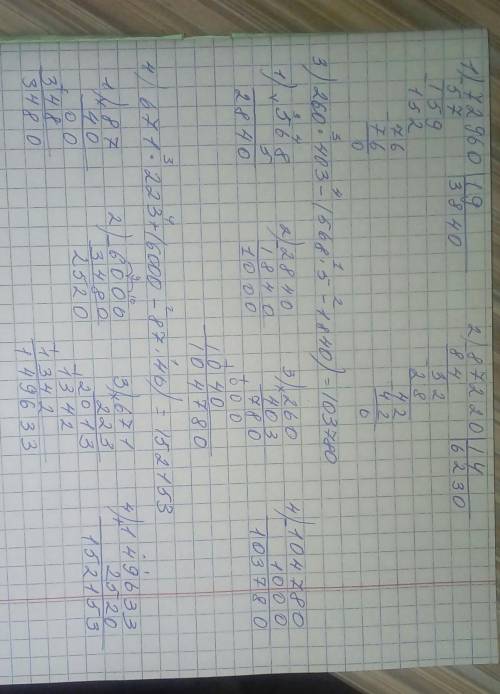 1) 72960 | 19
57 | 3840
159
152
76
76
0
2) 87220 | 14
84 | 6230
32
28
42
42
0
3) 260 · 403 - (568 · 5 - 1840) = 103780
1) 568
5
2840
2) 2840
1840
1000
3) 260
403
780
000
1040
104780
4) 104780
1000
103780
4) 671 · 223 + (6000 - 87 · 40) = 152153
1) 87
40
00
348
3480
2) 6000
3480
2520
3) 671
223
2013
1342
1342
149633
4) 149633
2520
152153